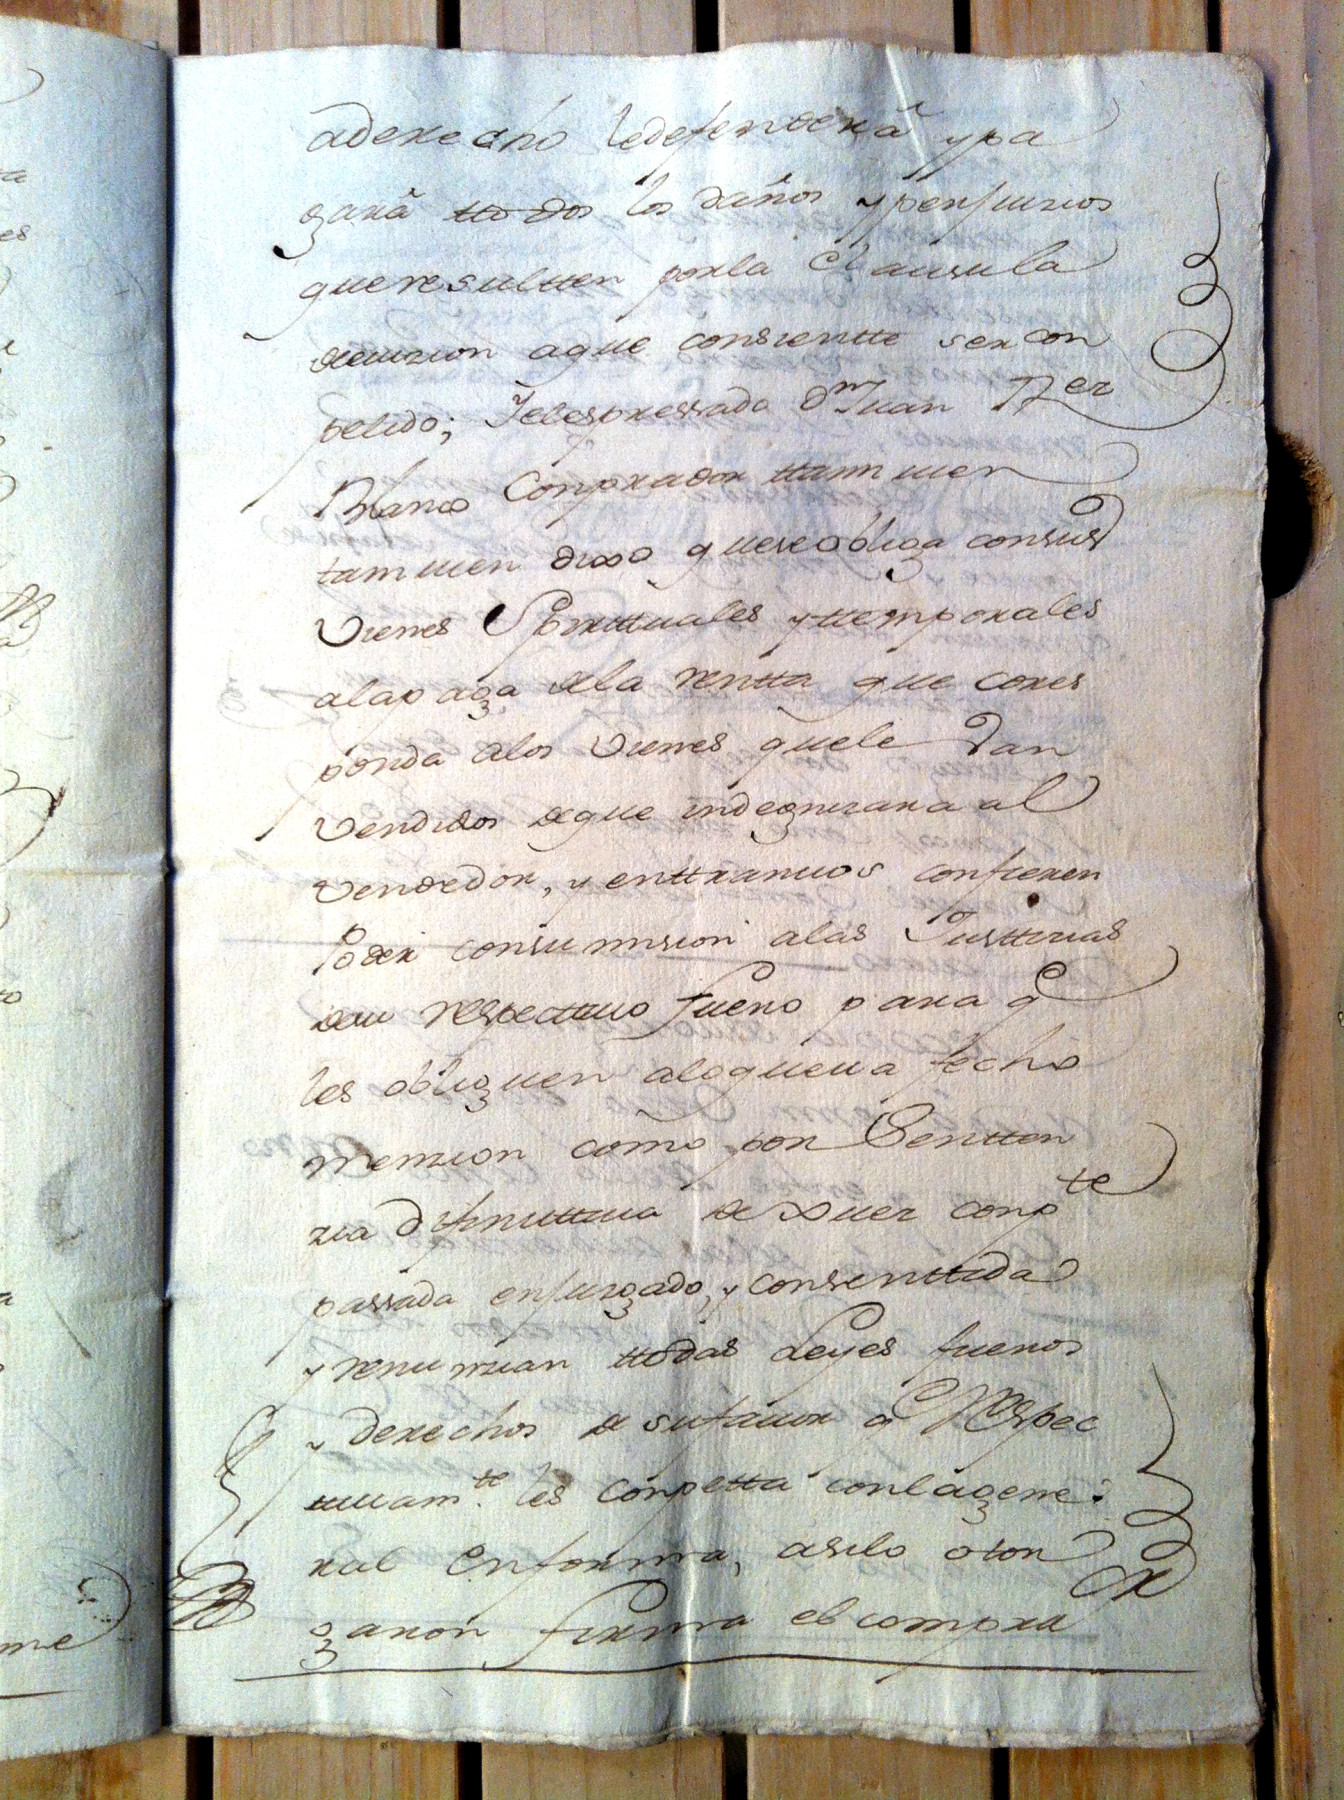 aderecho ledefenderá ypa
gará ttodos los daños yperjuizios
queresultten porla Clausula
deeuizion aque consientte sercon
pelido; Jelespressado Dn Juan Pz
Blanco Conprador ttamuien
tamuien dixo queseobliga consus
Vienes Spirittuales yttemporales
alapaga dela rentta que cores
ponda alos Vienes quele Van
Vendidos deque indegnizara al
Vendedor, y enttramuos confieren
Poder consumision alas Justtizias
desu respecttiuo fuero para q
les obliguen aloqueua fecho
menzion como por Sentten
zia difinittiua de Juez conpte
passada enjuzgado, y consenttida
y renunzian ttodas Leyes fueros
y derechos de sufauor q Respec
ttiuamte les conpetta conlagene
ral Enforma, asilo otor
garon firma el compra